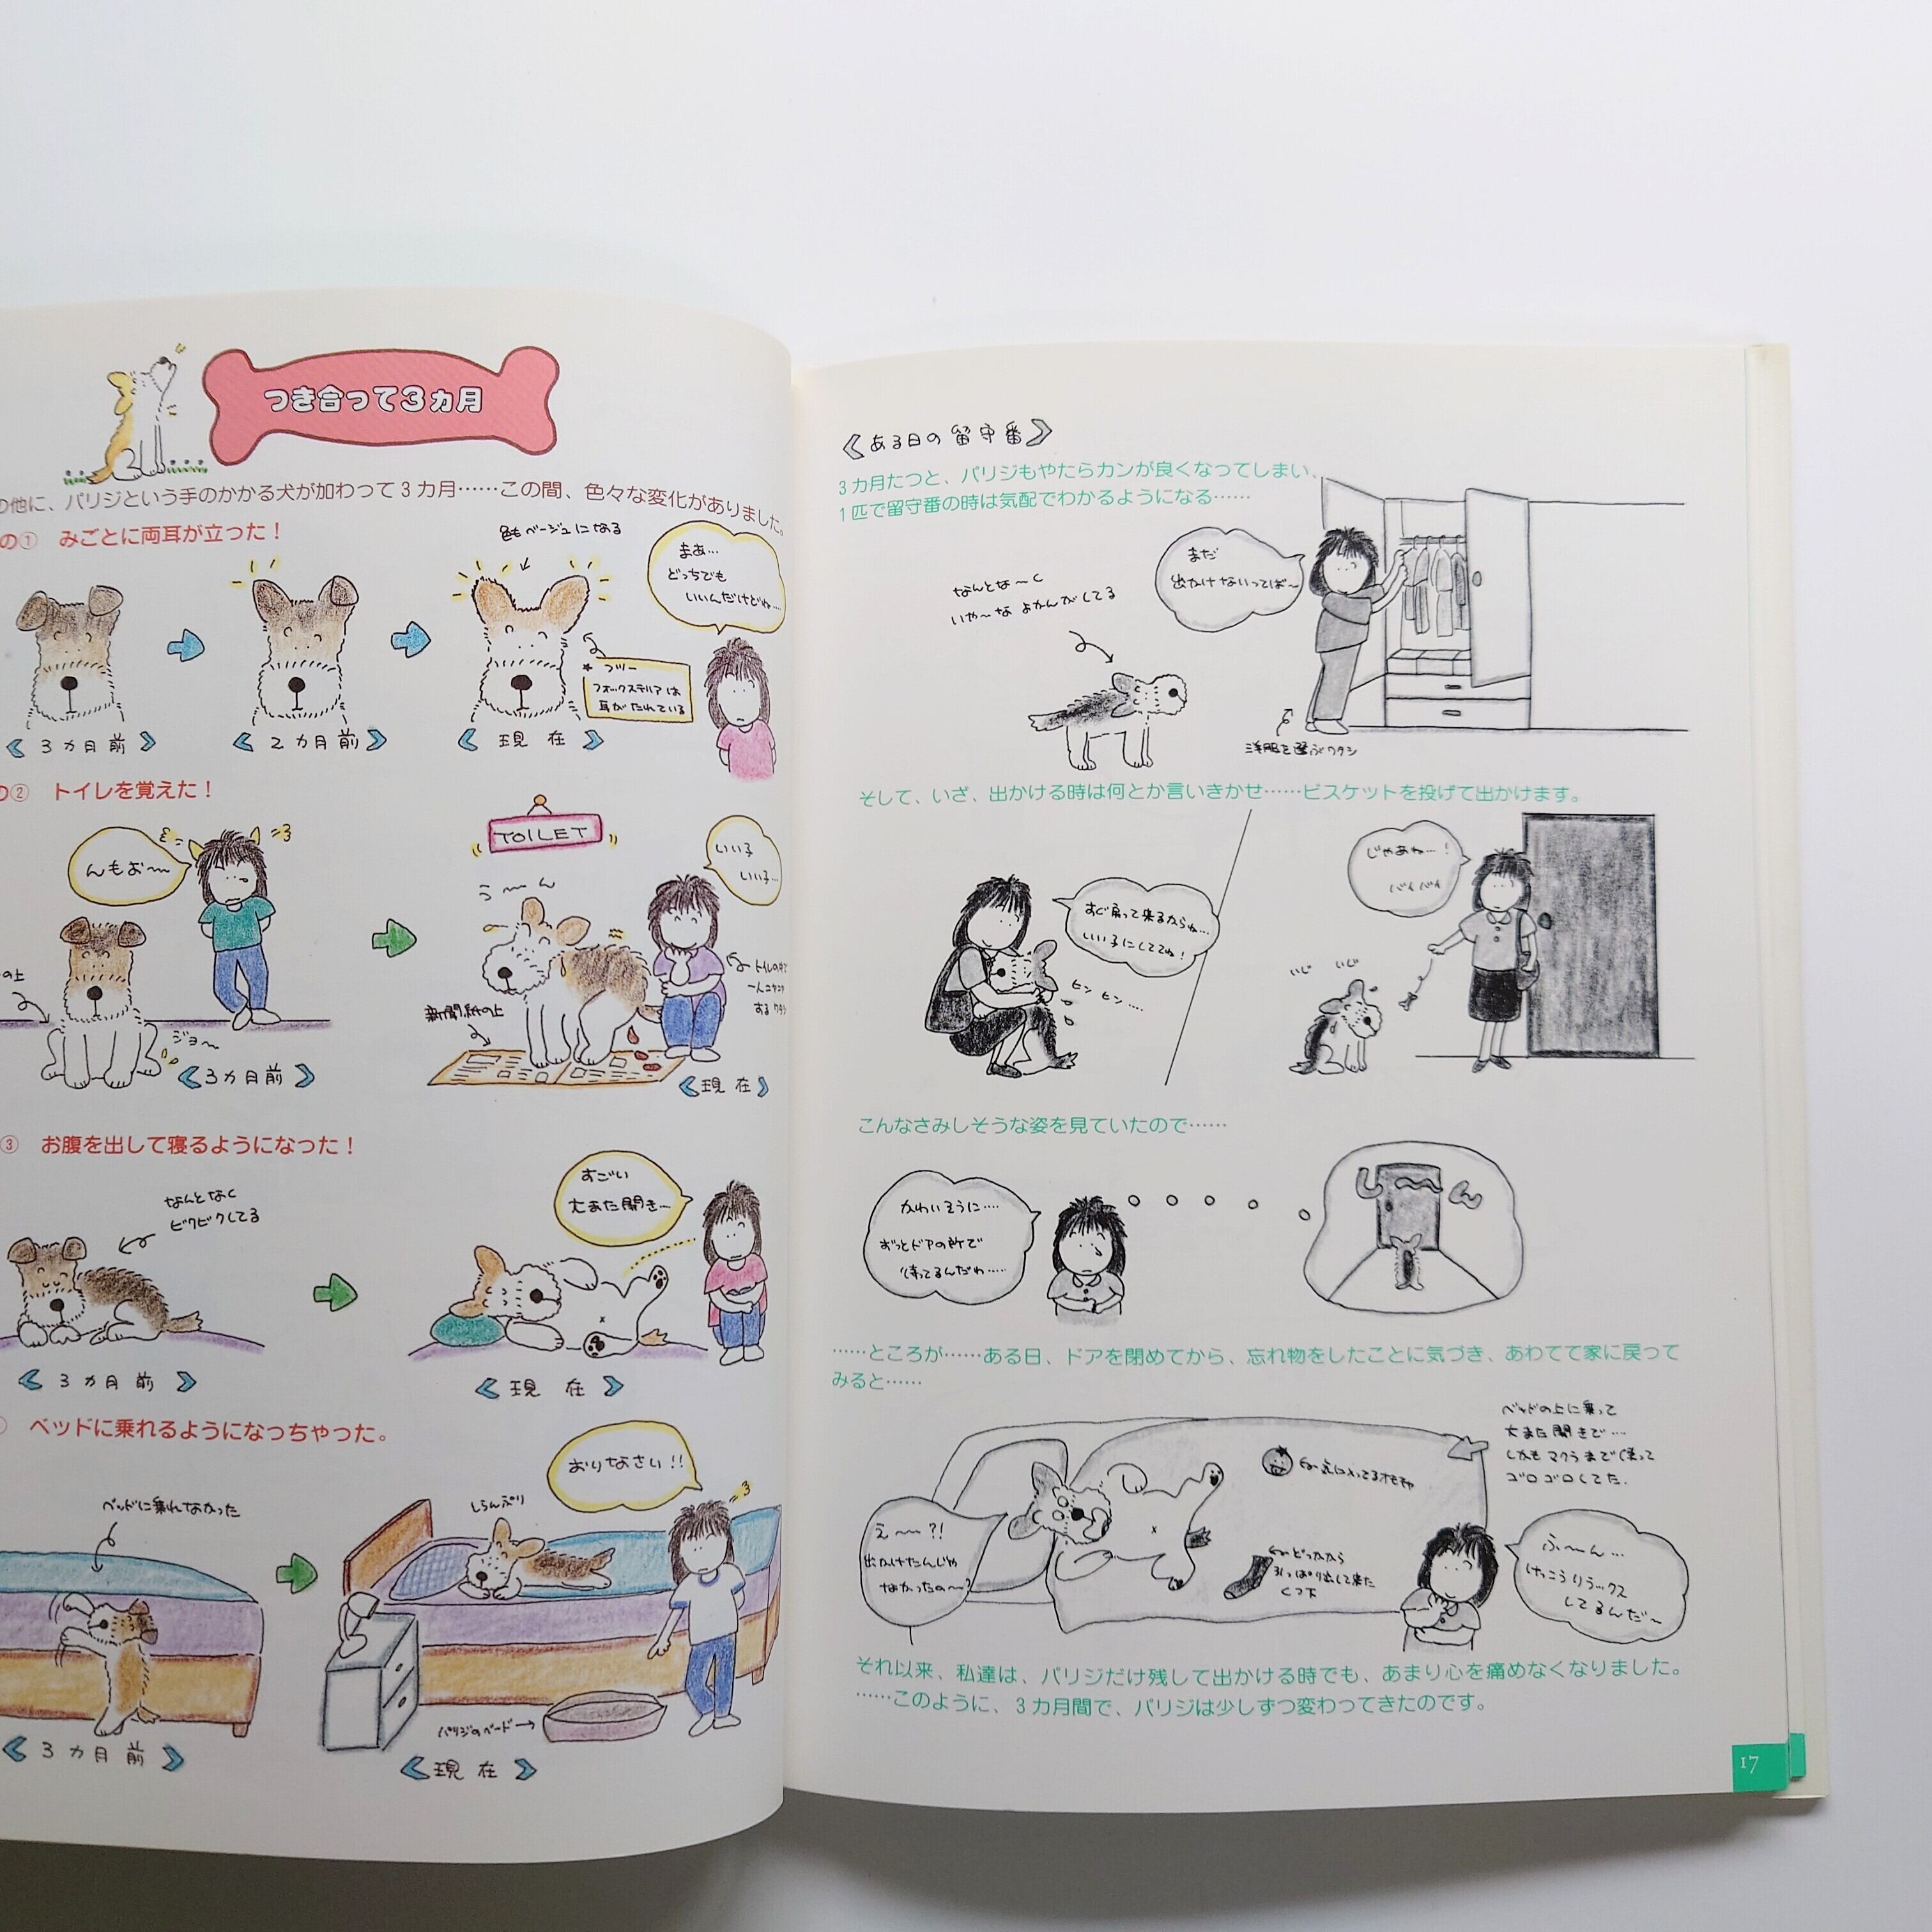 つき合って3カ月
の他に、パリジという手のかかる犬が加わって3カ月……この間、色々な変化がありました。
の① みごとに両耳が立った！
色もベージュになる
まあ…
どっちでも
いいんだけどね…
* フツー
フォックステリアは
耳がたれている
《3カ月前》
《2カ月前》
《現在》
の② トイレを覚えた！
んもお〜
の上
ジョ〜
《3カ月前》
TOILET
う〜ん
いい子
いい子…
新聞紙の上
するワタシ
《現在》
③ お腹を出して寝るようになった！
なんとなく
ビクビクしてる
すごい
大また開き…
《3カ月前》
《現在》
ベッドに乗れるようになっちゃった。
ベッドに乗れなかった
しらんぷり
おりなさい!!
パリジのベッド→
《3カ月前》
《現在》
《ある日の留守番》
3カ月たつと、パリジもやたらカンが良くなってしまい、
1匹で留守番の時は気配でわかるようになる……
なんとな〜く
いや〜な よかんがしてる
まだ
出かけないってば〜
洋服を選ぶワタシ
そして、いざ、出かける時は何とか言いきかせ……ビスケットを投げて出かけます。
すぐ帰って来るからね…
いい子にしててね！
ヒン ヒン….
じゃあね…！
バイバイ
いじ いじ
こんなさみしそうな姿を見ていたので……
かわいそうに….
ずっとドアの所で
待ってるんだわ…..
し〜ん
……ところが……ある日、ドアを閉めてから、忘れ物をしたことに気づき、あわてて家に戻って
みると……
ベッドの上に乗って
大また開きで…
しかもマクラまで使って
ゴロゴロしてた.
気に入ってるオモチャ
え〜〜?!
出かけたんじゃ
なかったの〜?
どっかから
引っぱり出して来た
くつ下
ふ〜ん…
けっこうリラックス
してるんだ〜
それ以来、私達は、パリジだけ残して出かける時でも、あまり心を痛めなくなりました。
……このように、3カ月間で、パリジは少しずつ変わってきたのです。
17